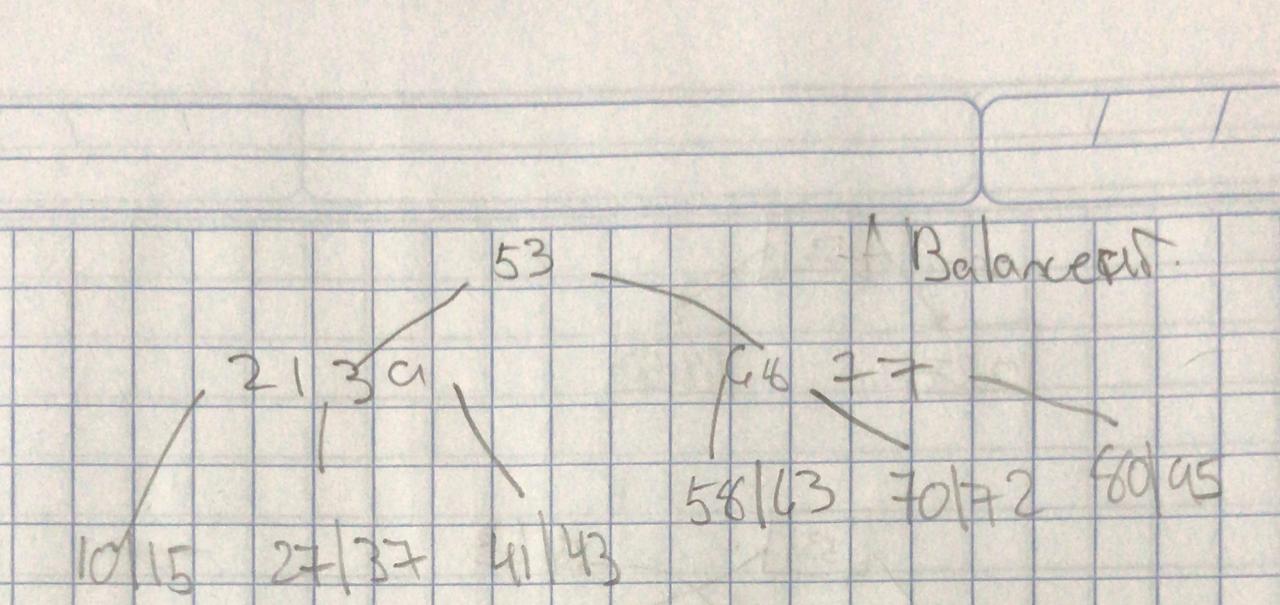 53
Balanced
21 39 68 77
10|15 27|37 41|43 58|63 70|72 80|95